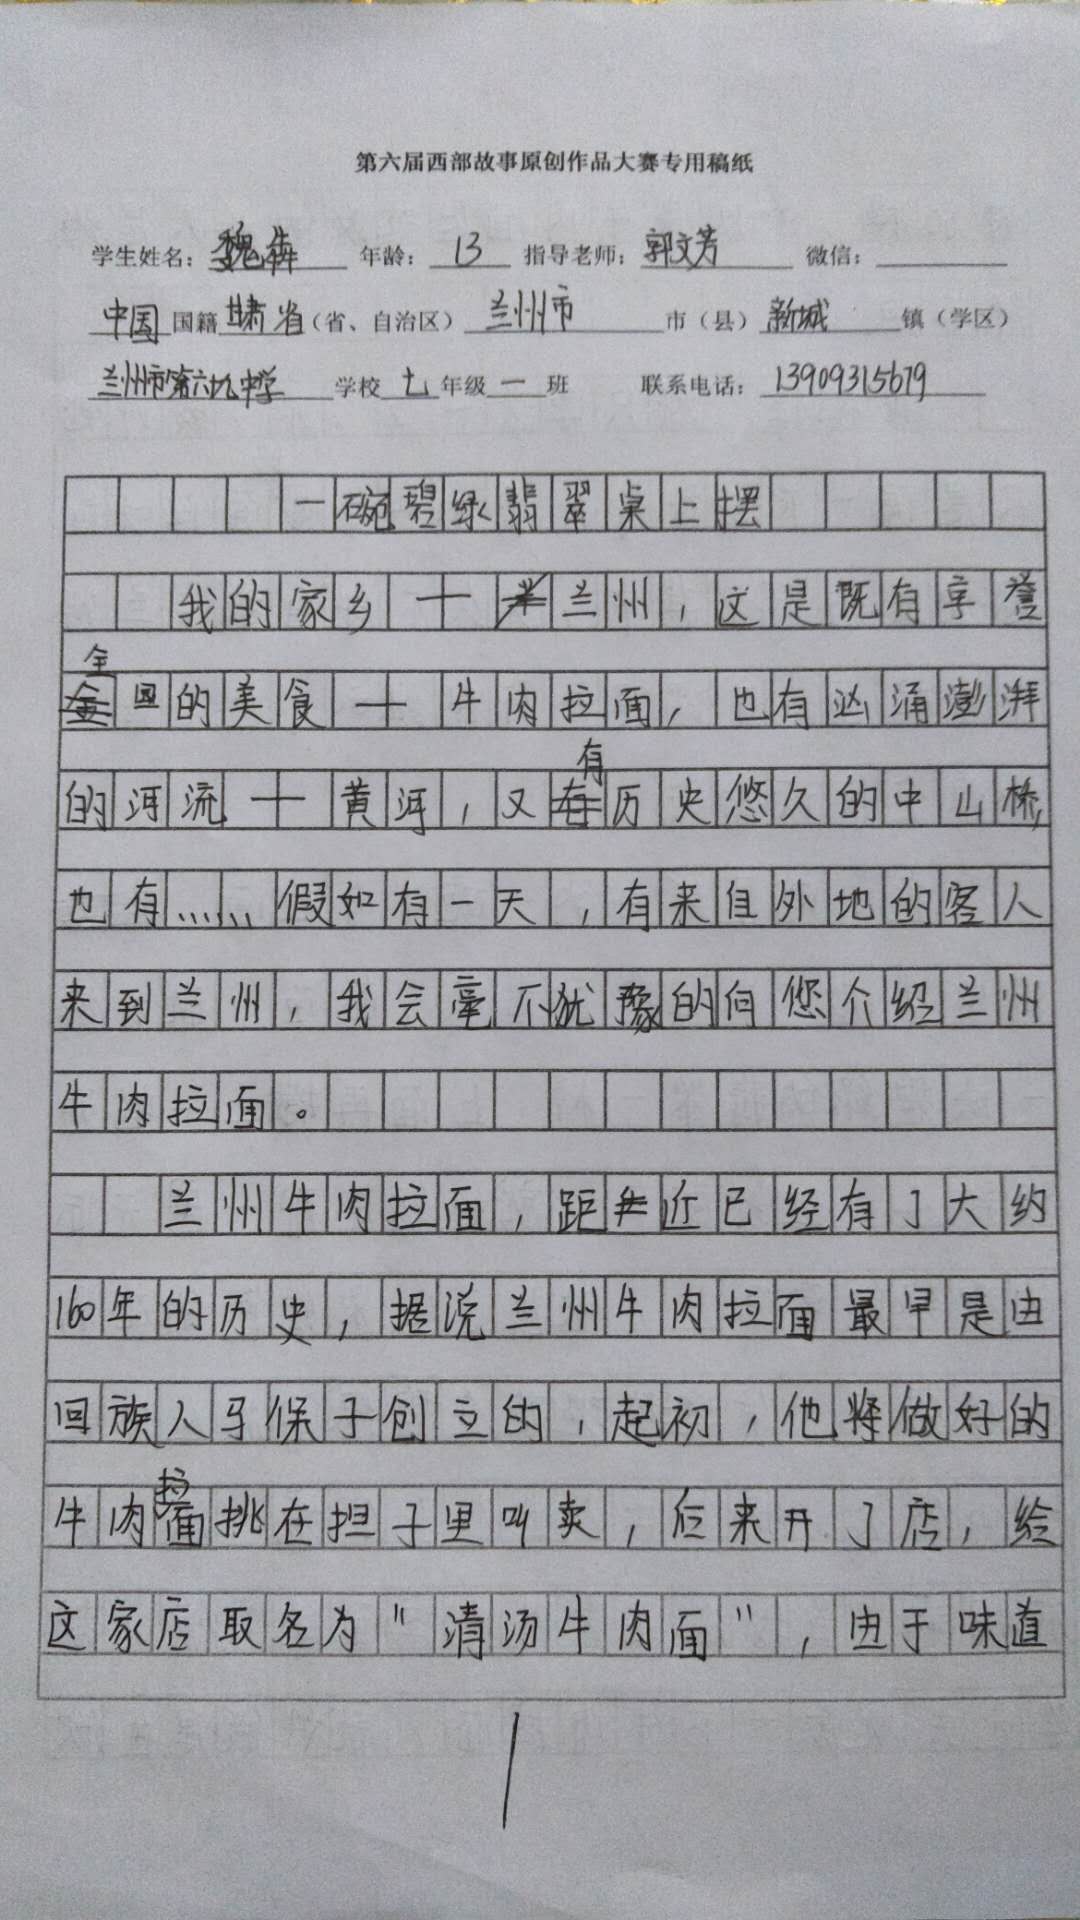 第六届西部故事原创作品大赛专用稿纸
学生姓名：魏犇 年龄：13 指导老师：郭文芳 微信：
中国国籍 甘肃省（省、自治区） 兰州市 市（县） 新城 镇（学区）
兰州市第六十九中学 学校 七 年级 一 班 联系电话：13909315679
一碗碧绿翡翠桌上摆
我的家乡——兰州，这是既有享誉
全国的美食——牛肉拉面，也有汹涌澎湃
的河流——黄河，又有历史悠久的中山桥，
也有……假如有一天，有来自外地的客人
来到兰州，我会毫不犹豫的向您介绍兰州
牛肉拉面。
兰州牛肉拉面，距近已经有了大约
160年的历史，据说兰州牛肉拉面最早是由
回族人马保子创立的，起初，他将做好的
牛肉拉面挑在担子里叫卖，后来开了店，给
这家店取名为“清汤牛肉面”，由于味道
1